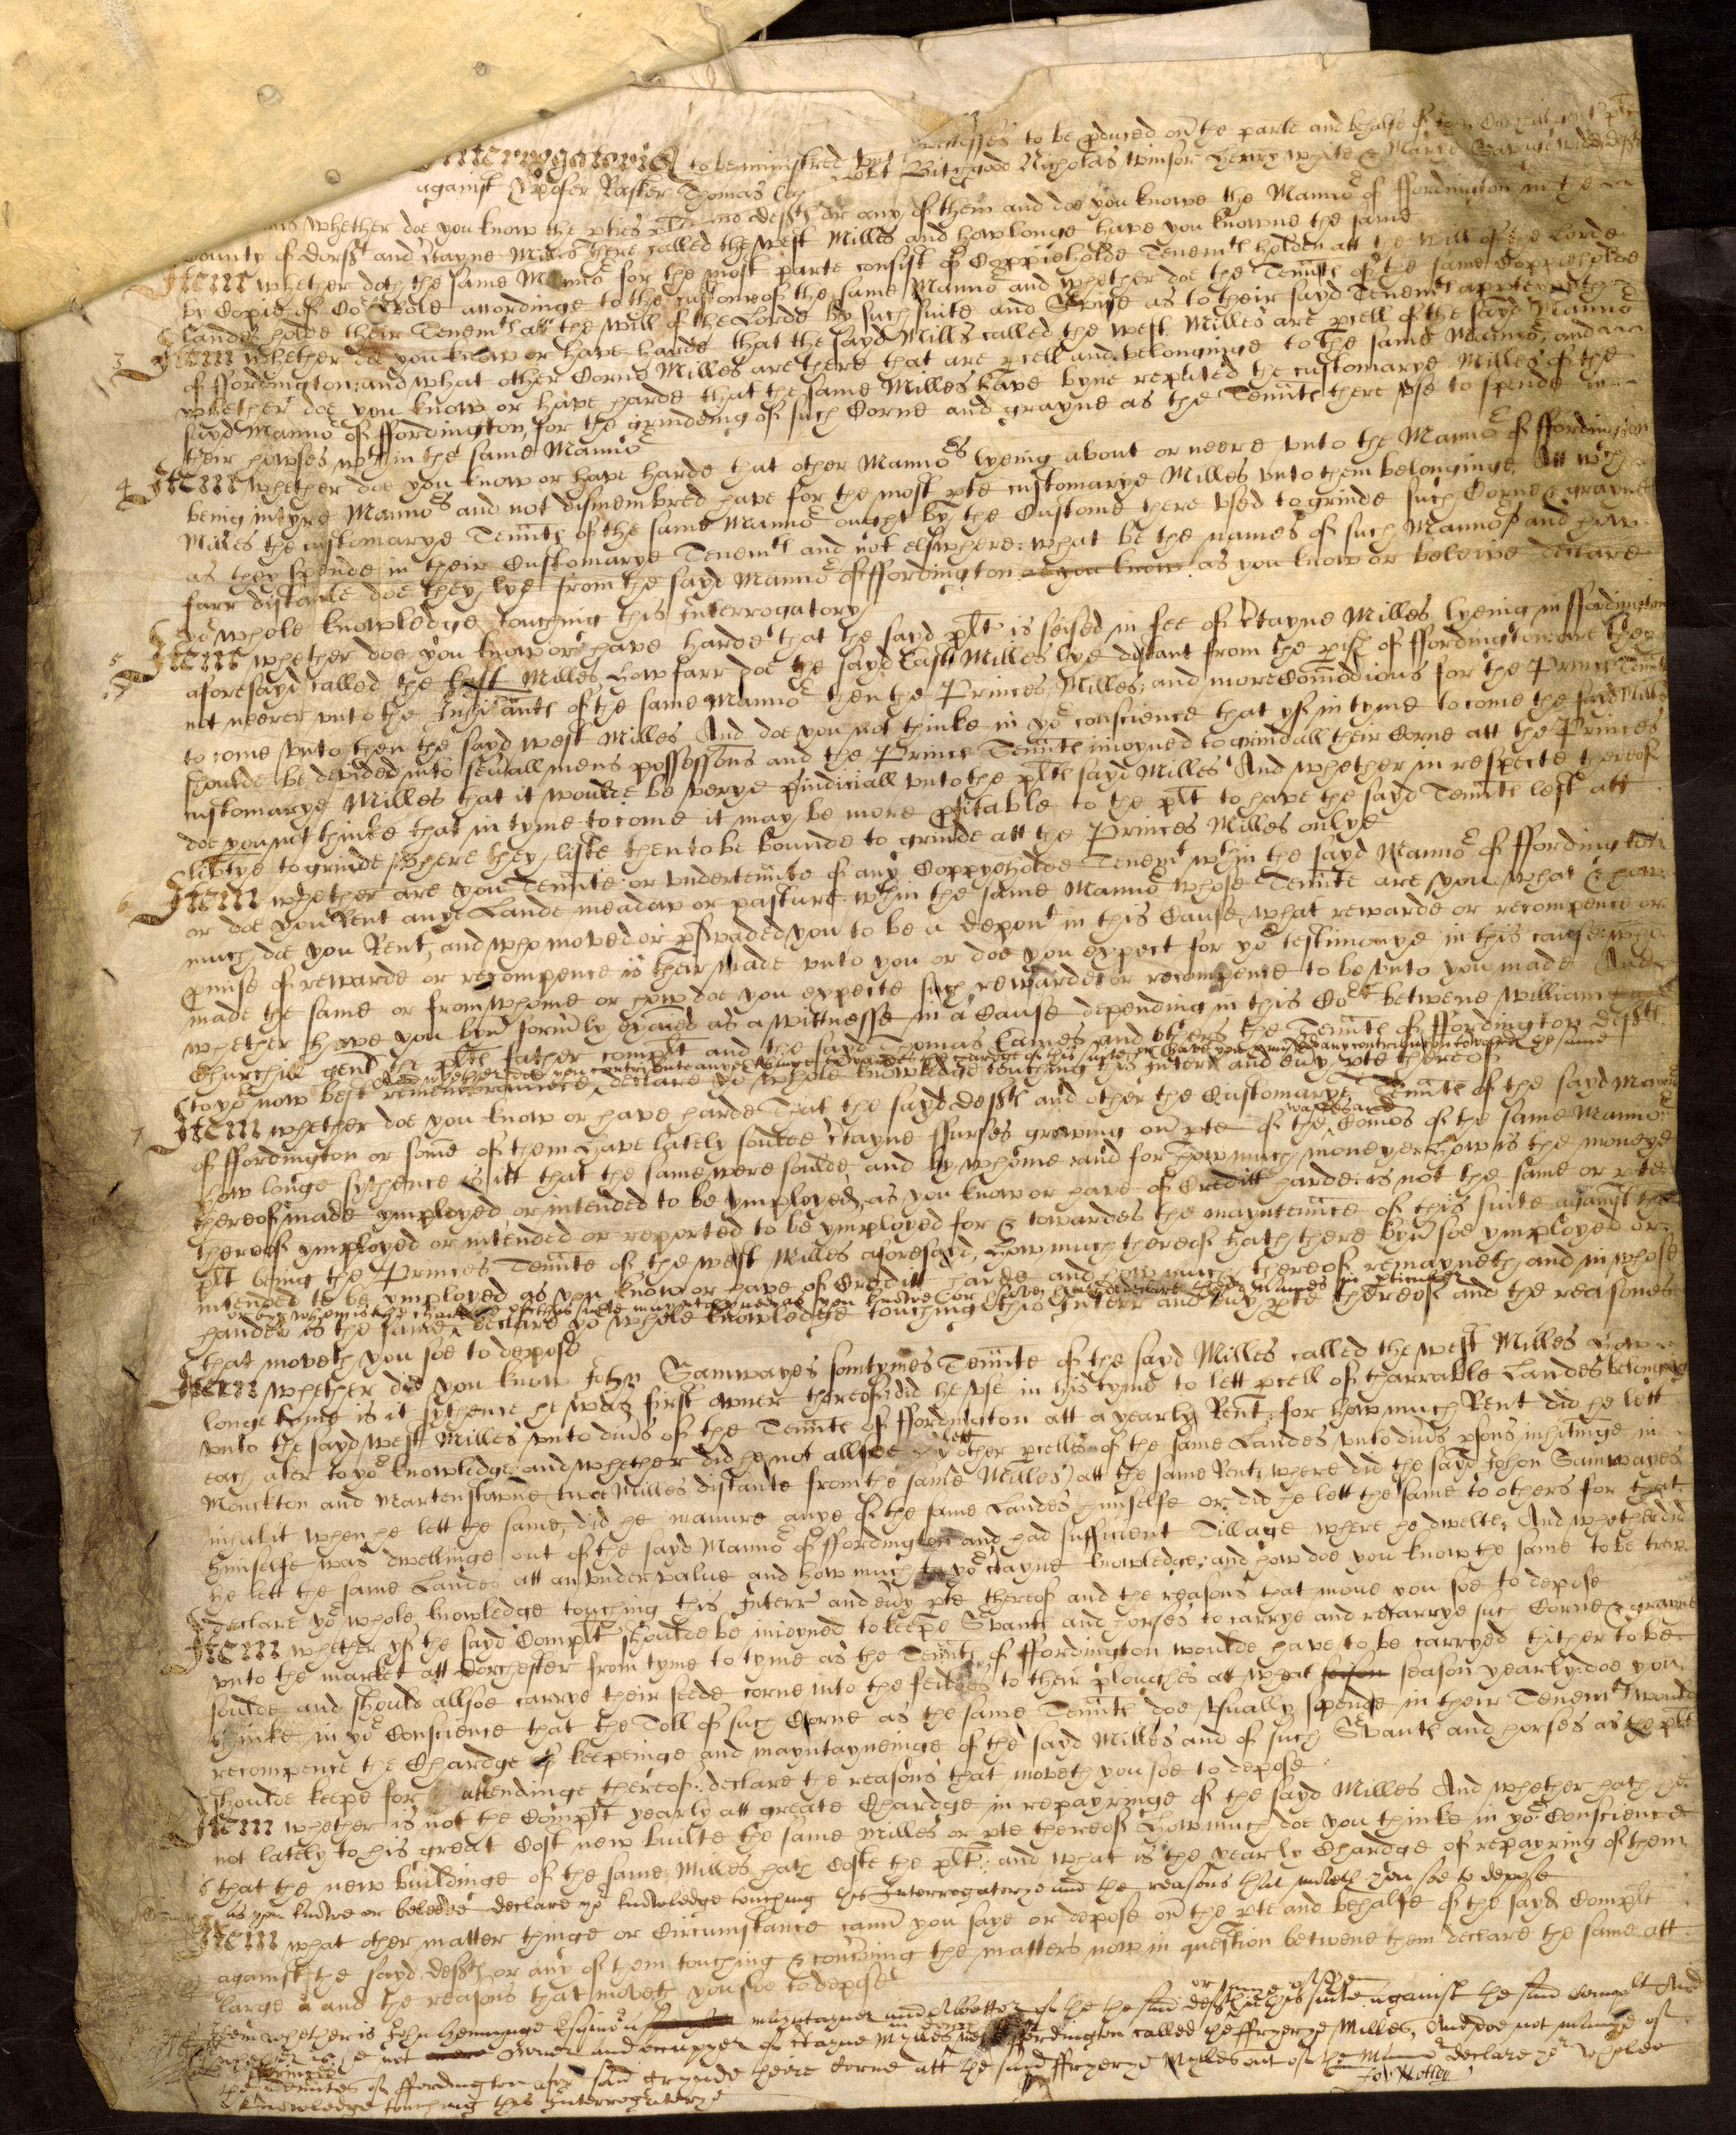 Interrogatories to be ministred wittnesses to be pduced on the parte and behalfe of
against Xpofer Rasker Thomas Robt Bithgood Nicholas Winsor Henry Whyte & Widd deftes
whether doe you know the pties plt deftes or any of them and doe you knowe the Manno'r of ffordington in the
County of Dorst and Ctayne Mills there called the West Milles and how longe have you knowne the same
Item whether doth the same Manno'r for the most parte consist of Coppieholde Tenemtes holden att the Will of the Lorde
by Copie of Co'rt Role accordinge to the custome of the same Manno'r and whether doe the Tennites of the same Coppieholde
Landes holde their Tenemtes att the will of the Lorde by such suite and Svice as to their sayd Tenemtes
3 Item whether doe you know or have harde that the sayd Mills called the West Milles are pcell of the sayd Manno'r
of ffordington; and what other Corne Milles are there that are pcell and belonginge to the same Manno'r, and
whether doe you know or have harde that the same Milles have byne reputed the customarye Milles of the
sayd Manno'r of ffordington, for the grindeing of such Corne and grayne as the Tennites there vse to spende in
their howses wthin the same Manno'r
4 Item whether doe you know or have harde that other Manno'rs lyeing about or neere vnto the Manno'r of ffordington
being intyre Manno'rs and not dismembred have for the most pte customarye Milles vnto them belonginge, Att wch
Milles the customarye Tennites of the same Manno'r ought by the Custome there vsed to grinde such Corne & grayne
as they spende in their Customarye Tenemtes and not elswhere: what be the names of such Manno'rs and how
farr distante doe they lye from the sayd Manno'r of ffordington as you know as you know or beleive declare
yo'r whole knowledge touching this Interrogatory
5 Item whether doe you know or have harde that the sayd plt is seised in fee of Ctayne Milles lyeing in ffordington
aforesayd called the East Milles How farr doe the sayd East Milles lye distant from the pish of ffordington: are they
not neerer vnto the Inhitantes of the same Manno'r then the Princes Milles; and more comodious for the Princes Tennites
to come vnto then the sayd West Milles And doe you not thinke in yo'r conscience that yf in tyme to come the sayd Mills
shoulde be devided into sevall mens possessions and the Princes Tennites inioyned to grind all their Corne att the Princes
customarye Milles that it woulde be verye piudiciall vnto the pltes sayd Milles And whether in respecte thereof
doe you not thinke that in tyme to come it may be more pfitable to the plt to have the sayd Tennites left att
libtye to grinde where they liste then to be bounde to grinde att the Princes Milles onlye
6 Item whether are you Tennite or vndertennte of any Coppyeholde Tenemt wthin the sayd Manno'r of ffordington
or doe you Rent anye Lande meadow or pasture wthin the same Manno'r whose Tennte are you what & how
much doe you Rent, and who moved or pswaded you to be a depont in this Cause, what rewarde or recompence or
pmise of rewarde or recompence is their made vnto you or doe you expect for yo'r testimonye in this cause: who
made the same or from whome or how doe you expecte such rewarde or recompence to be vnto you made And
whether have you byn formly exaied as a wittnesse in a Cause depending in this Co'rt betwene William
Churchill gent the pltes father complt and the sayd Thomas Eames and others the Tennites of ffordington deftes
And whether doe you contribute anye thinge towardes the chardge of this suite or have you promised any contribucion towardes the same
to yo'r now best remembrannce, declare yo'r whole knowledge touching this Interr and evy pte thereof
7 Item whether doe you know or have harde That the sayd deftes and other the Customarye Tennites of the sayd Manno'r
of ffordington or some of them have lately soulde Ctayne ffurses growing on pte of the wastes and Comons of the same Manno'r
how longe sythence is itt that the same were soulde, and by whome and for how much moneye: How is the moneye
thereof made ymployed, or intended to be ymployed, as you know or have of Creditt harde: is not the same or pte
thereof ymployed or intended or reported to be ymployed for & towardes the mayntennce of this suite against the
plt being the Princes Tennite of the West Milles aforesayd, How much thereof hath there byn soe ymployed or
intended to be ymployed as you know or have of Creditt harde and how much thereof remayneth and in whose
or by whom is the chardge of this suite mayntayned as you knowe or have harde declare their names in pticuler
handes is the same, declare yo'r whole knowledge touching this Interr and evy pte thereof and the reasones
that moveth you soe to depose
Item whether did you know John Samwayes somtymes Tennite of the sayd Milles called the West Milles How
longe tyme is it sythence he was first owner thereof: did he vse in his tyme to lett pcell of tharrable Landes belonging
vnto the sayd West Milles vnto divs of the Tennites of ffordington att a yearly Rent: for how much Rent did he lett
each aker to yo'r knowledge: and whether did he not allsoe lett other pcelles of the same Landes vnto divs psons inhitinge in
Monckton and Martenstowne (two Milles distante from the same Milles) att the same Rent, where did the sayd John Samwayes
inhabit when he lett the same, did he manure anye of the same Landes himselfe or did he lett the same to others for that
himselfe was dwellinge out of the sayd Manno'r of ffordington and had sufficient Tillage where he dwelte: And whether did
he lett the same Landes att an vndervalue and how much to yo'r Ctayne knowledge; and how doe you know the same to be trew
declare yo'r whole knowledge touching this Interr and evy pte thereof and the reasons that move you soe to depose
Item whether yf the sayd Complt shoulde be inioyned to keepe Svantes and horses to carrye and recarrye such Corne & grayne
vnto the market att Dorchester from tyme to tyme as the Tennites of ffordington woulde have to be carryed thither to be
soulde, and should allsoe carrye their seede corne into the feildes to their ploughes att wheat season yearly: doe you
thinke in yo'r Conscience that the Toll of such Corne as the same Tennites doe vsually spende in their Tenemtes would
recompence the Chardge of keepeinge and mayntayneinge of the sayd Milles and of such Svantes and horses as the plt
shoulde keepe for attendinge thereof: declare the reasons that moveth you soe to depose
Item whether is not the Complt yearly att greate Chardge in repayringe of the sayd Milles And whether hath he
not lately to his great Cost new builte the same Milles or pte thereof How much doe you thinke in yo'r Conscience
that the new buildinge of the same Milles hath Coste the plt: and what is the yearly Chardge of repayring of them
as you knowe or beleeve declare yo'r knowledge touching this Interrogatorye and the reasons that moveth you soe to depose
Item what other matter thinge or Circumstance cann you saye or depose on the pte and behalfe of the sayd Complt
against the sayd deftes or any of them touching & concerning the matters now in question betwene them declare the same att
large and the reasons that moveth you soe to depose
Item whether is John Hemminge Esquire a mayntayner and abettor of the said deftes in this suite against the said Complt And
whether is he not Owner and occupyer of Ctayne Mylles neere ffordington called the ffryerye Milles, And doe not manye of
the Tennites of ffordington aforesaid grynde theire Corne att the said ffryerye Mylles out of the Manno'r declare yo'r whole
knowledge touching this Interrogatorye